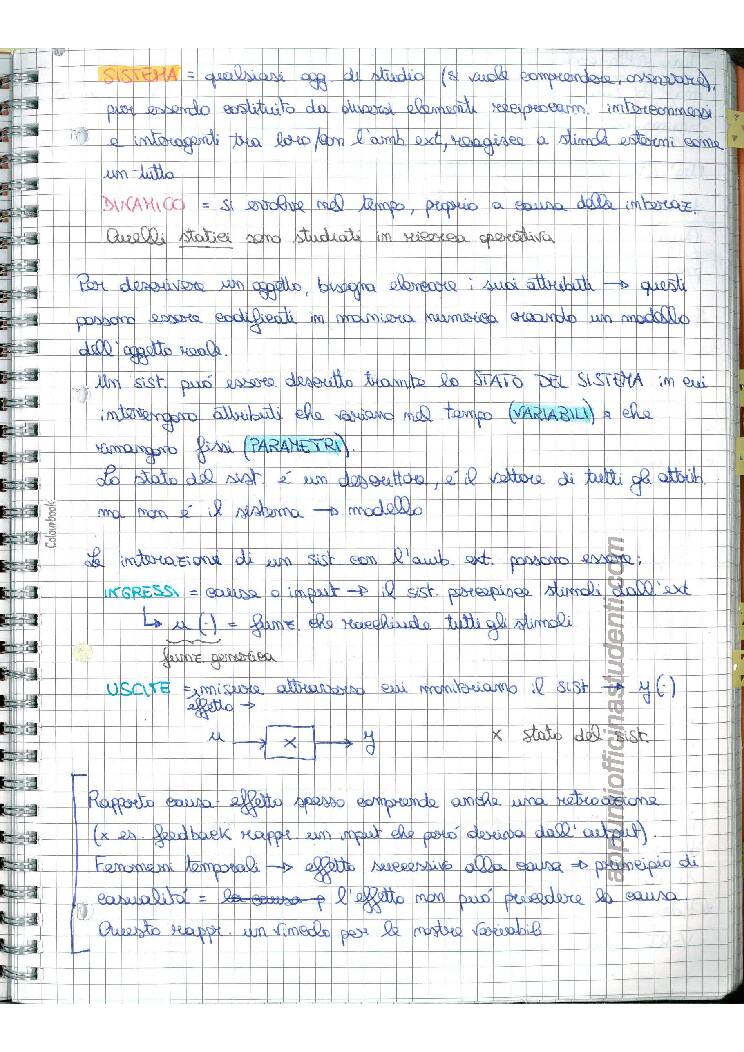 SISTEMA = qualsiasi ogg. di studio (si vuole comprendere, osservare),
pur essendo costituito da diversi elementi reciprocam. interconnessi
e interagenti tra loro/con l'amb ext, reagisce a stimoli esterni come
un tutto
DINAMICO = si evolve nel tempo, proprio a causa delle interaz.
Quelli statici sono studiati in ricerca operativa
Per descrivere un oggetto, bisogna elencare i suoi attributi → questi
possono essere codificati in maniera numerica creando un modello
dell'oggetto reale.
Un sist. può essere descritto tramite lo STATO DEL SISTEMA in cui
intervengono attributi che variano nel tempo (VARIABILI) e che
rimangono fissi (PARAMETRI).
Lo stato del sist é un descrittore, é il vettore di tutti gli attrib.
ma non é il sistema → modello
Le interazione di un sist con l'amb. ext. possono essere:
INGRESSI = cause o input → il sist. percepisce stimoli dall'ext
u (·) = funz. che racchiude tutti gli stimoli
funz generica
USCITE = misure attraverso cui monitoriamo il sist → y(·)
effetto →
u → x → y x stato del sist.
Rapporto causa-effetto spesso comprende anche una retroazione
(x es. feedback rappr un input che peró deriva dall'output).
Fenomeni temporali → effetto successivo alla causa → principio di
casualitá = la causa p l'effetto non puó precedere la causa
Questo rappr. un vincolo per le nostre variabili
Colourbook
appuntiofficinastudenti.com